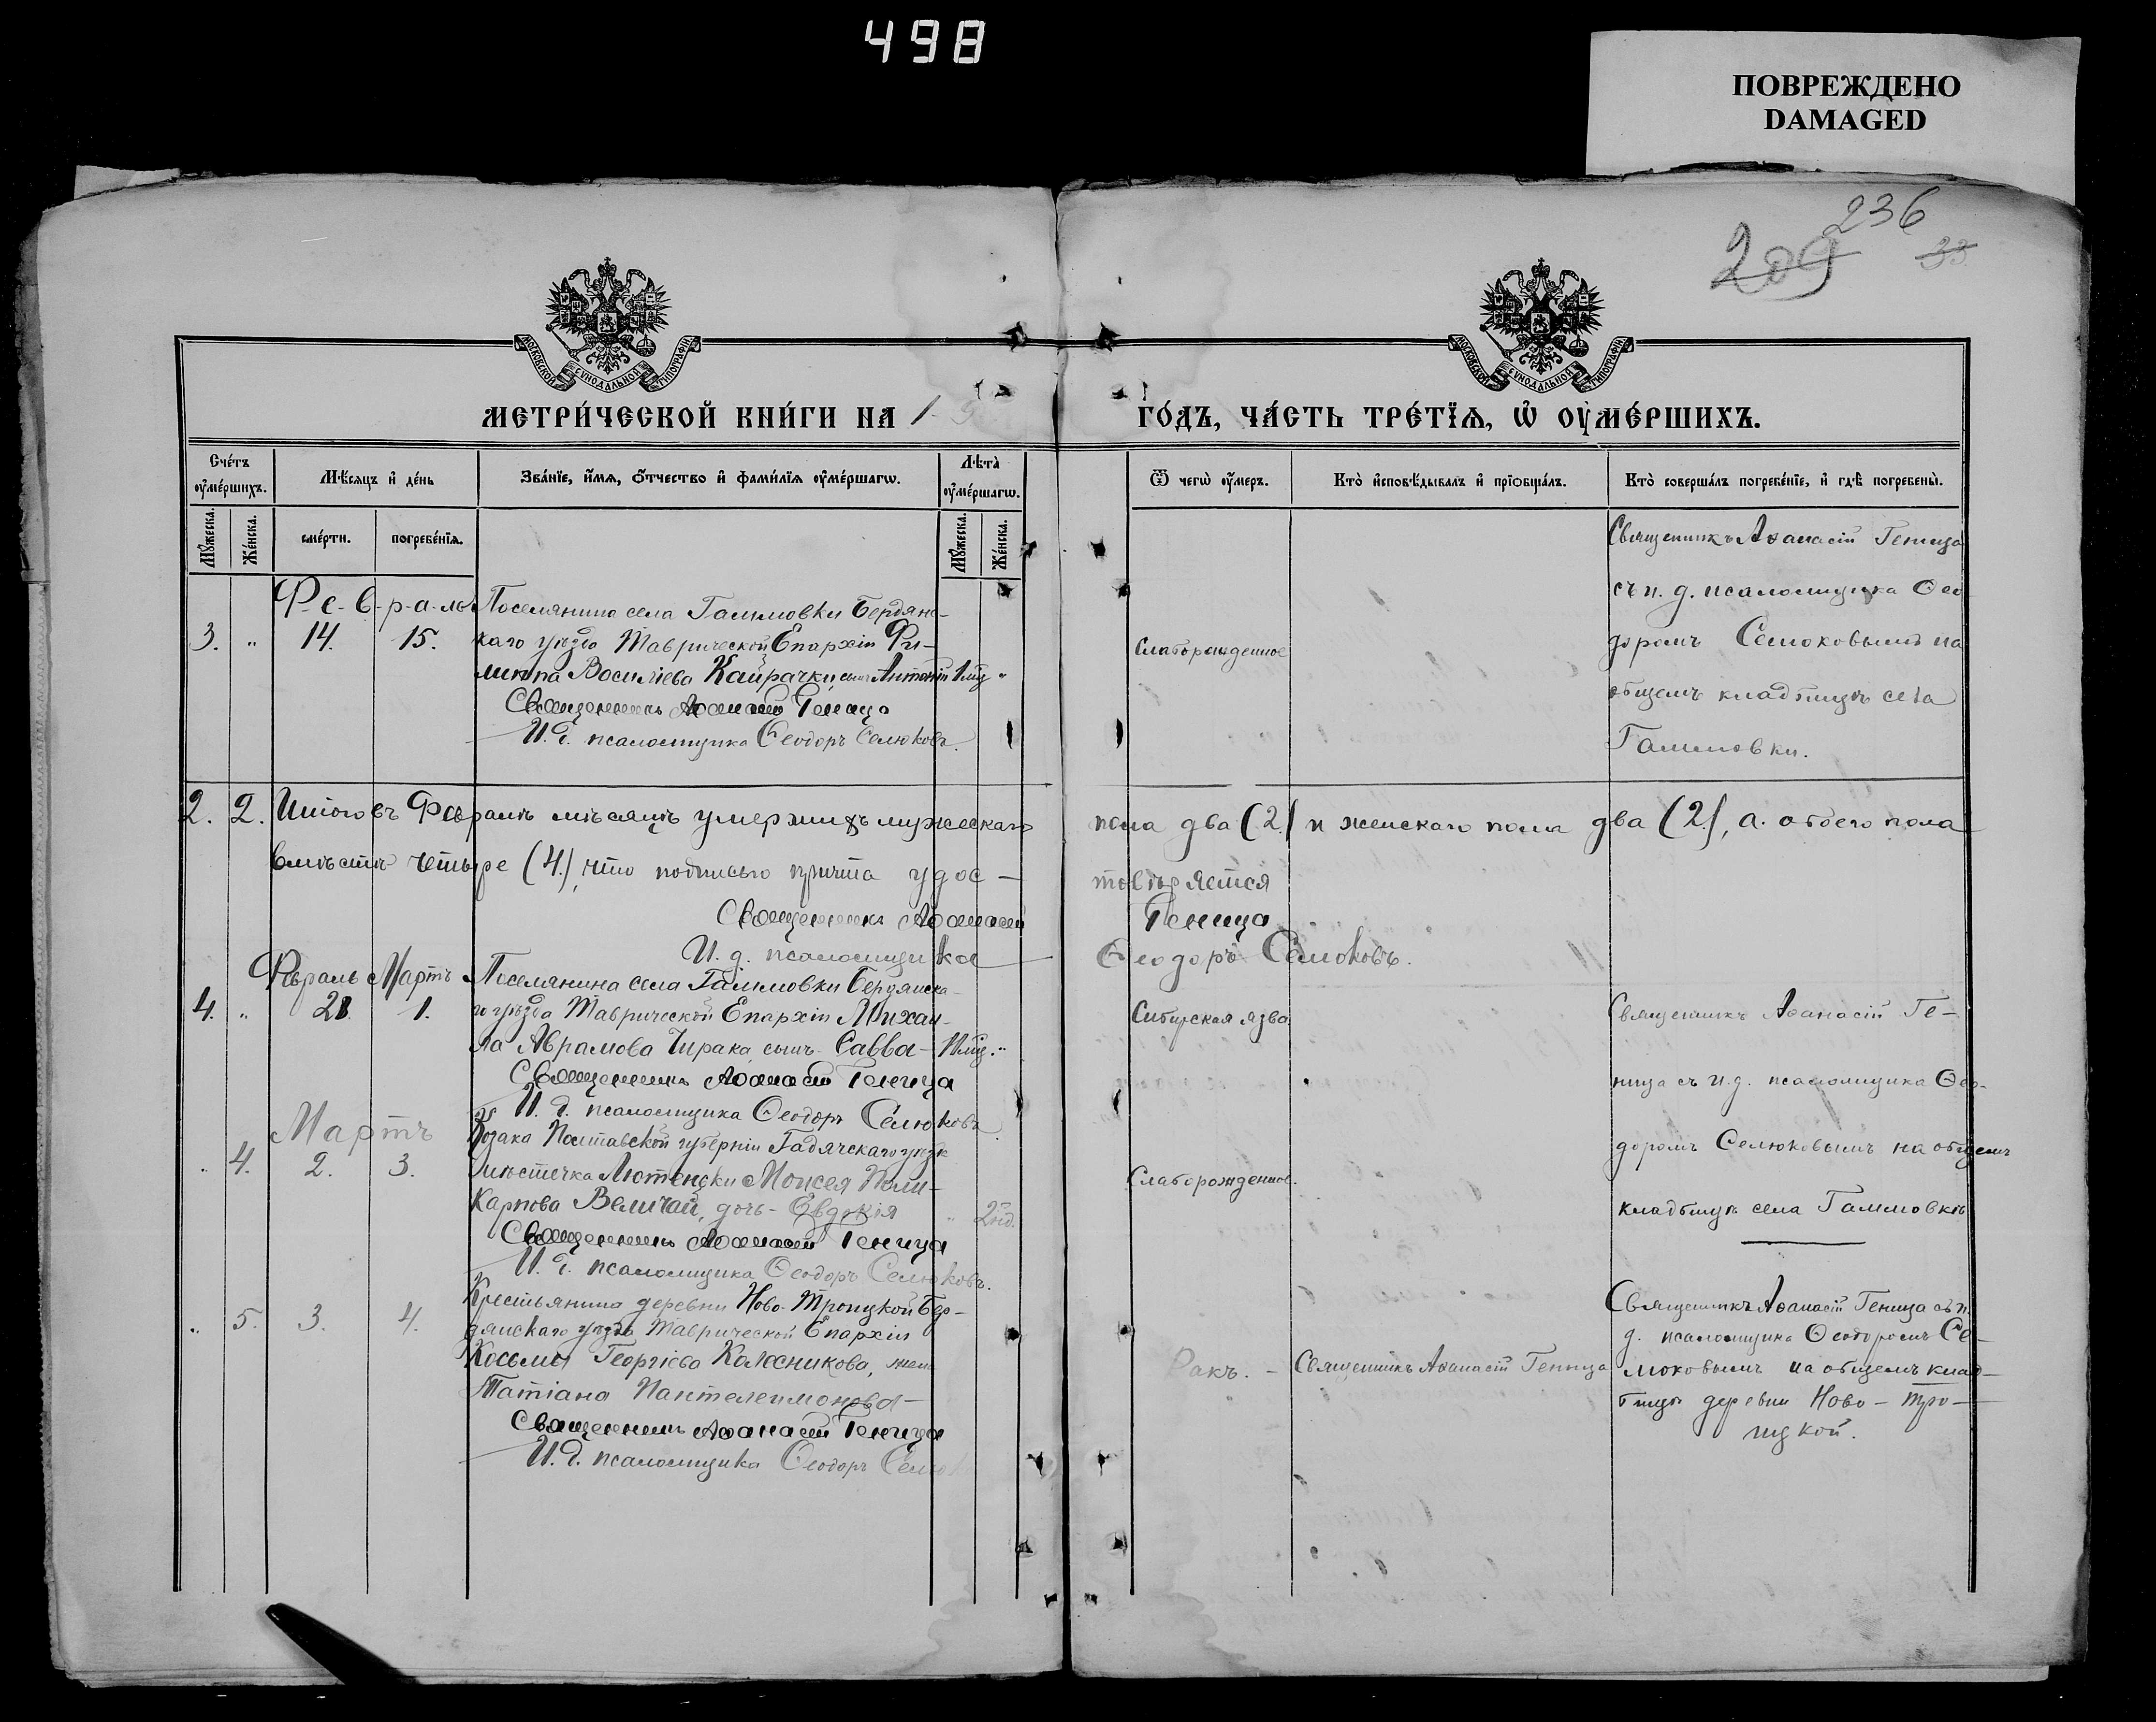 498
ПОВРЕЖДЕНО
DAMAGED
236
209
33
МОСКОВСКОЙ СѴНОДАЛЬНОЙ ТИПОГРАФІИ
МОСКОВСКОЙ СѴНОДАЛЬНОЙ ТИПОГРАФІИ
МЕТРИ́ЧЕСКОЙ КНИ́ГИ НА 1
ГО́ДЪ, ЧА́СТЬ ТРЕ́ТЇѦ, Ѡ҆ ОУ҆МЕ́РШИХЪ.
Сче́тъ оу҆ме́ршихъ.
Мѣ́сѧцъ и҆ де́нь
Зва́нїе, и҆́мѧ, ѻ҆́тчество и҆ фами́лїѧ оу҆ме́ршагѡ.
Лѣ́та̀ оу҆ме́ршагѡ.
Ѿ чегѡ̀ оу҆́меръ.
Кто̀ и҆сповѣ́дывалъ и҆ прїѡбща́лъ.
Кто̀ соверша́лъ погребе́нїе, и҆ гдѣ̀ погребены̀.
Мꙋ́жеска.
Же́нска.
сме́рти.
погребе́нїѧ.
Мꙋ́жеска.
Же́нска.
Фе-в-р-а-ль
3. " 14. 15.
Поселянина села Гамовки Бердянс-
каго уѣзда Таврической Епархіи Фи-
липпа Васильева Кайрачки, сынъ Антоній 1 "
Священникъ Аѳанасій Геница
И. д. псаломщика Ѳеодоръ Селюковъ.
Слаборожденное
Священникъ Аѳанасій Геница
съ и. д. псаломщика Ѳео-
доромъ Селюковымъ на
общемъ кладбищѣ села
Гамовки.
2. 2. Итого въ Февралѣ мѣсяцѣ умершихъ мужескаго пола два (2.) и женскаго пола два (2.), а обоего пола
вмѣстѣ четыре (4.), что подписью причта удос-
товѣряется
Священникъ Аѳанасій Геница
И. д. псаломщика Ѳеодоръ Селюковъ.
Февраль Мартъ
4. " 28. 1.
Поселянина села Гамовки Бердянска-
го уѣзда Таврической Епархіи Михаи-
ла Аврамова Чирака, сынъ - Савва - "
Священникъ Аѳанасій Геница
И. д. псаломщика Ѳеодоръ Селюковъ.
Сибирская язва.
Священникъ Аѳанасій Ге-
ница съ и. д. псаломщика Ѳео-
доромъ Селюковымъ на общемъ
кладбищѣ села Гамовкѣ
Мартъ
" 4. 2. 3.
Козака Полтавской губерніи Гадячскаго уѣзда
мѣстечка Лютеньки Моисея Поли-
карпова Величай, дочь - Евдокія " 2 нд.
Священникъ Аѳанасій Геница
И. д. псаломщика Ѳеодоръ Селюковъ.
Слаборожденное.
" 5. 3. 4.
Крестьянина деревни Ново-Троицкой Бер-
дянскаго уѣзда Таврической Епархіи
Косьмы Георгіева Калесникова, жена
Татіана Пантелеимонова -
Священникъ Аѳанасій Геница
И. д. псаломщика Ѳеодоръ Селюк
Ракъ. -
Священникъ Аѳанасій Геница
Священникъ Аѳанасій Геница съ и.
д. псаломщика Ѳеодоромъ Се-
люковымъ на общемъ клад-
бищѣ деревни Ново-Тро-
ицкой.